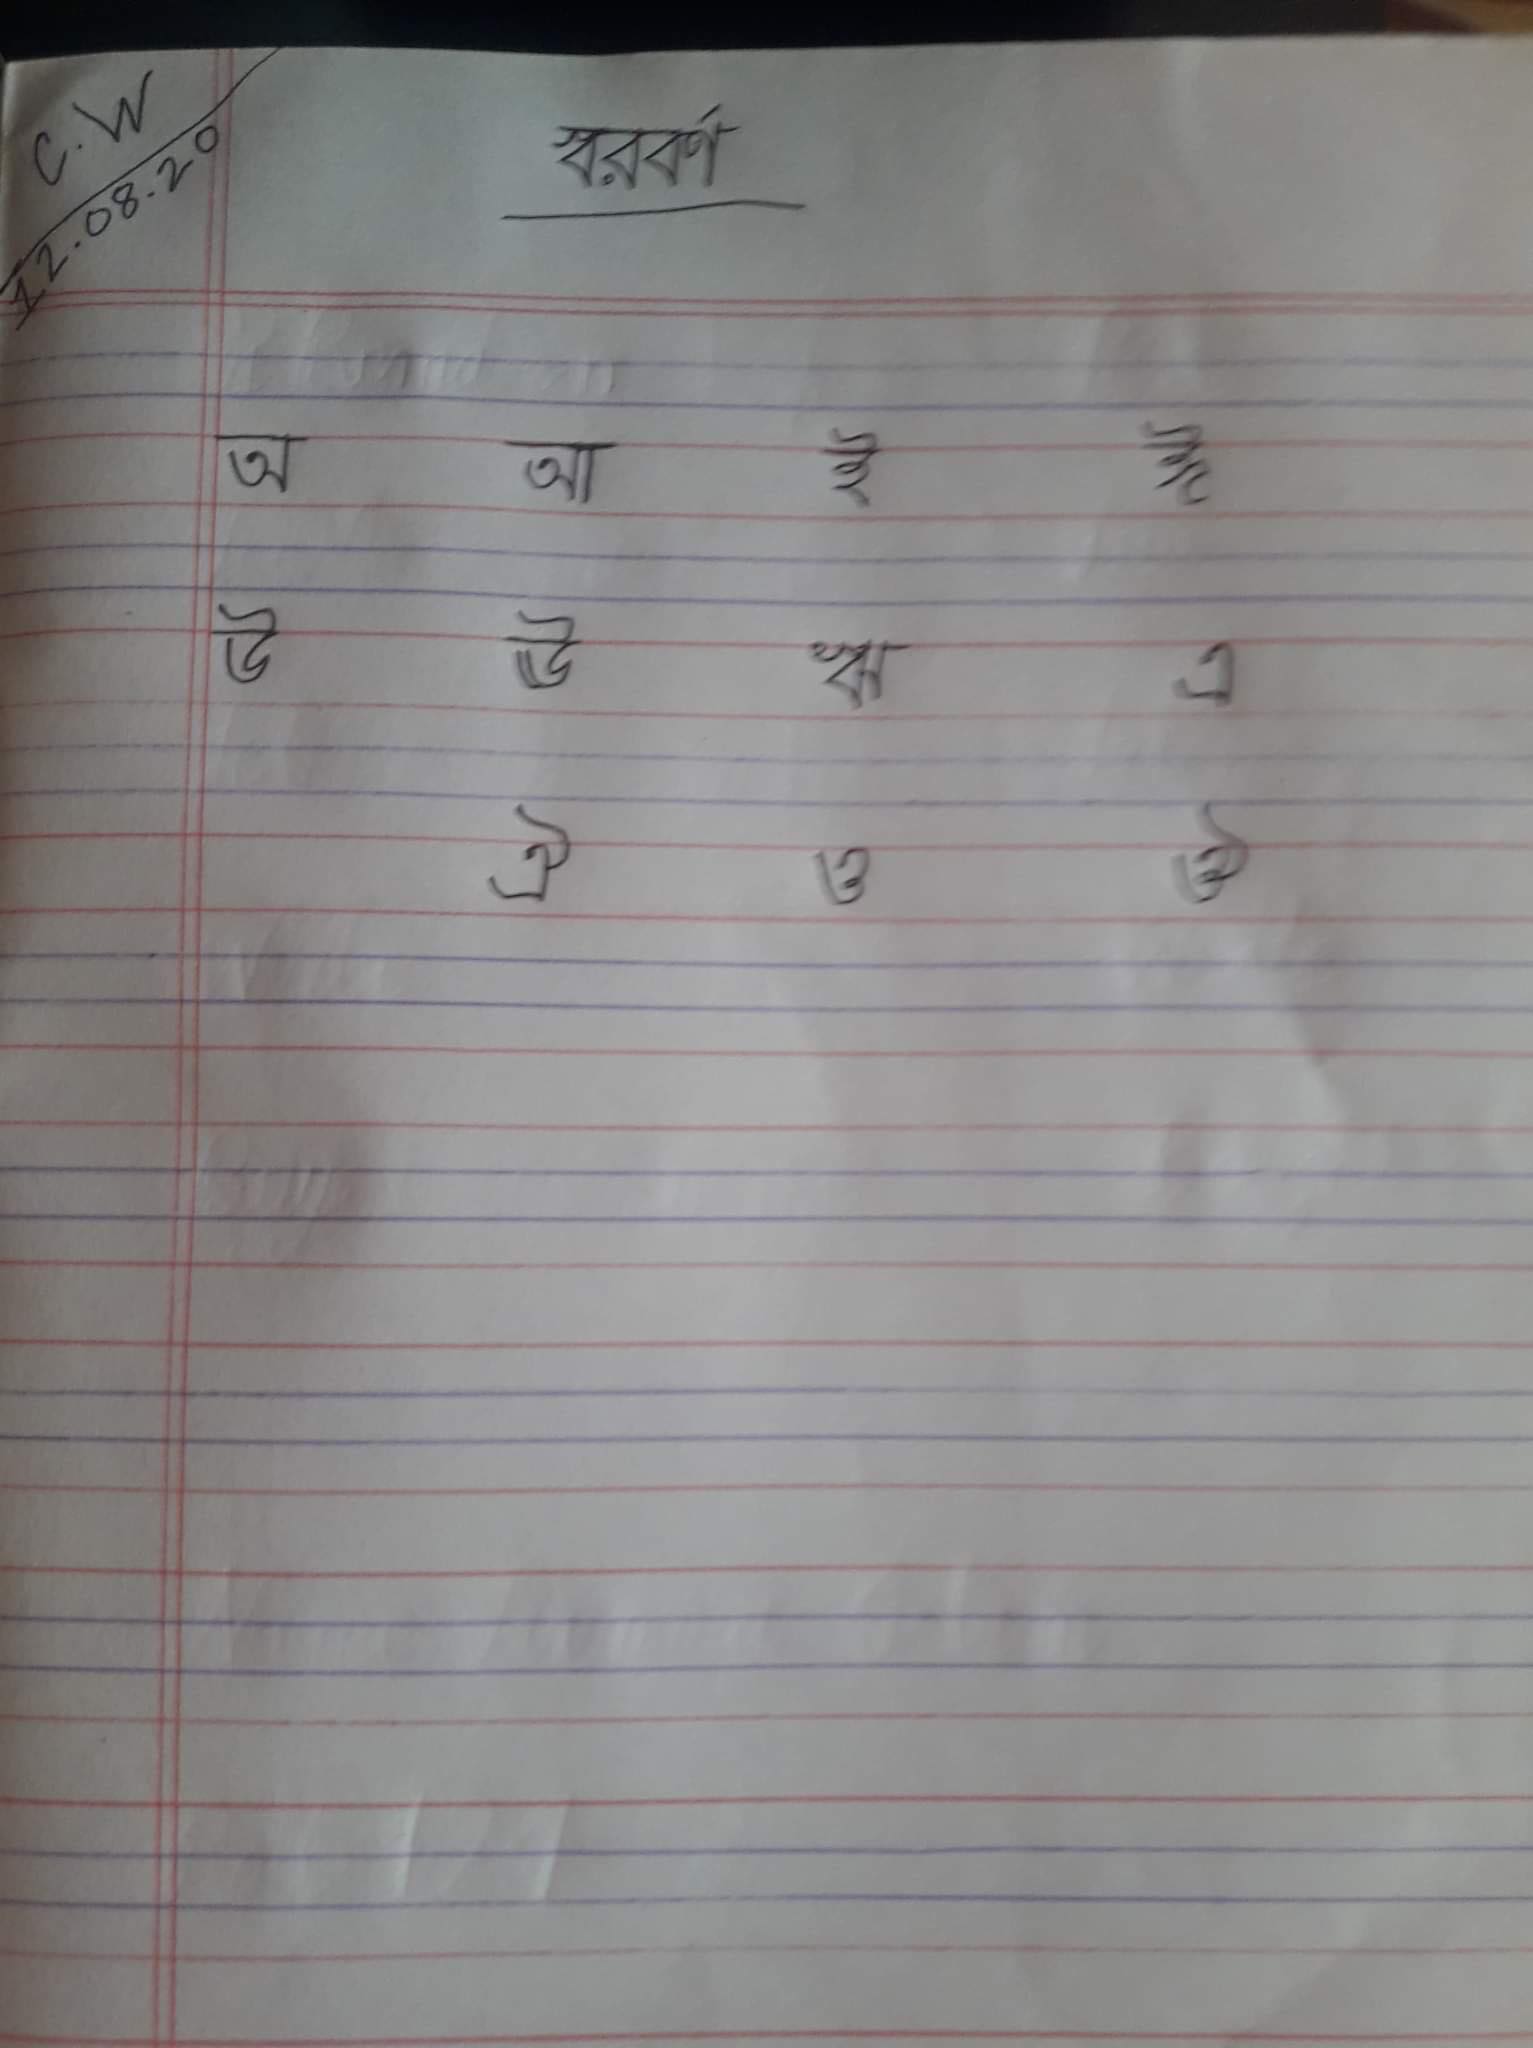 C.W
12.08.20
স্বরবর্ণ
অ আ ই ঈ
উ ঊ ঋ এ
ঐ ও ঔ